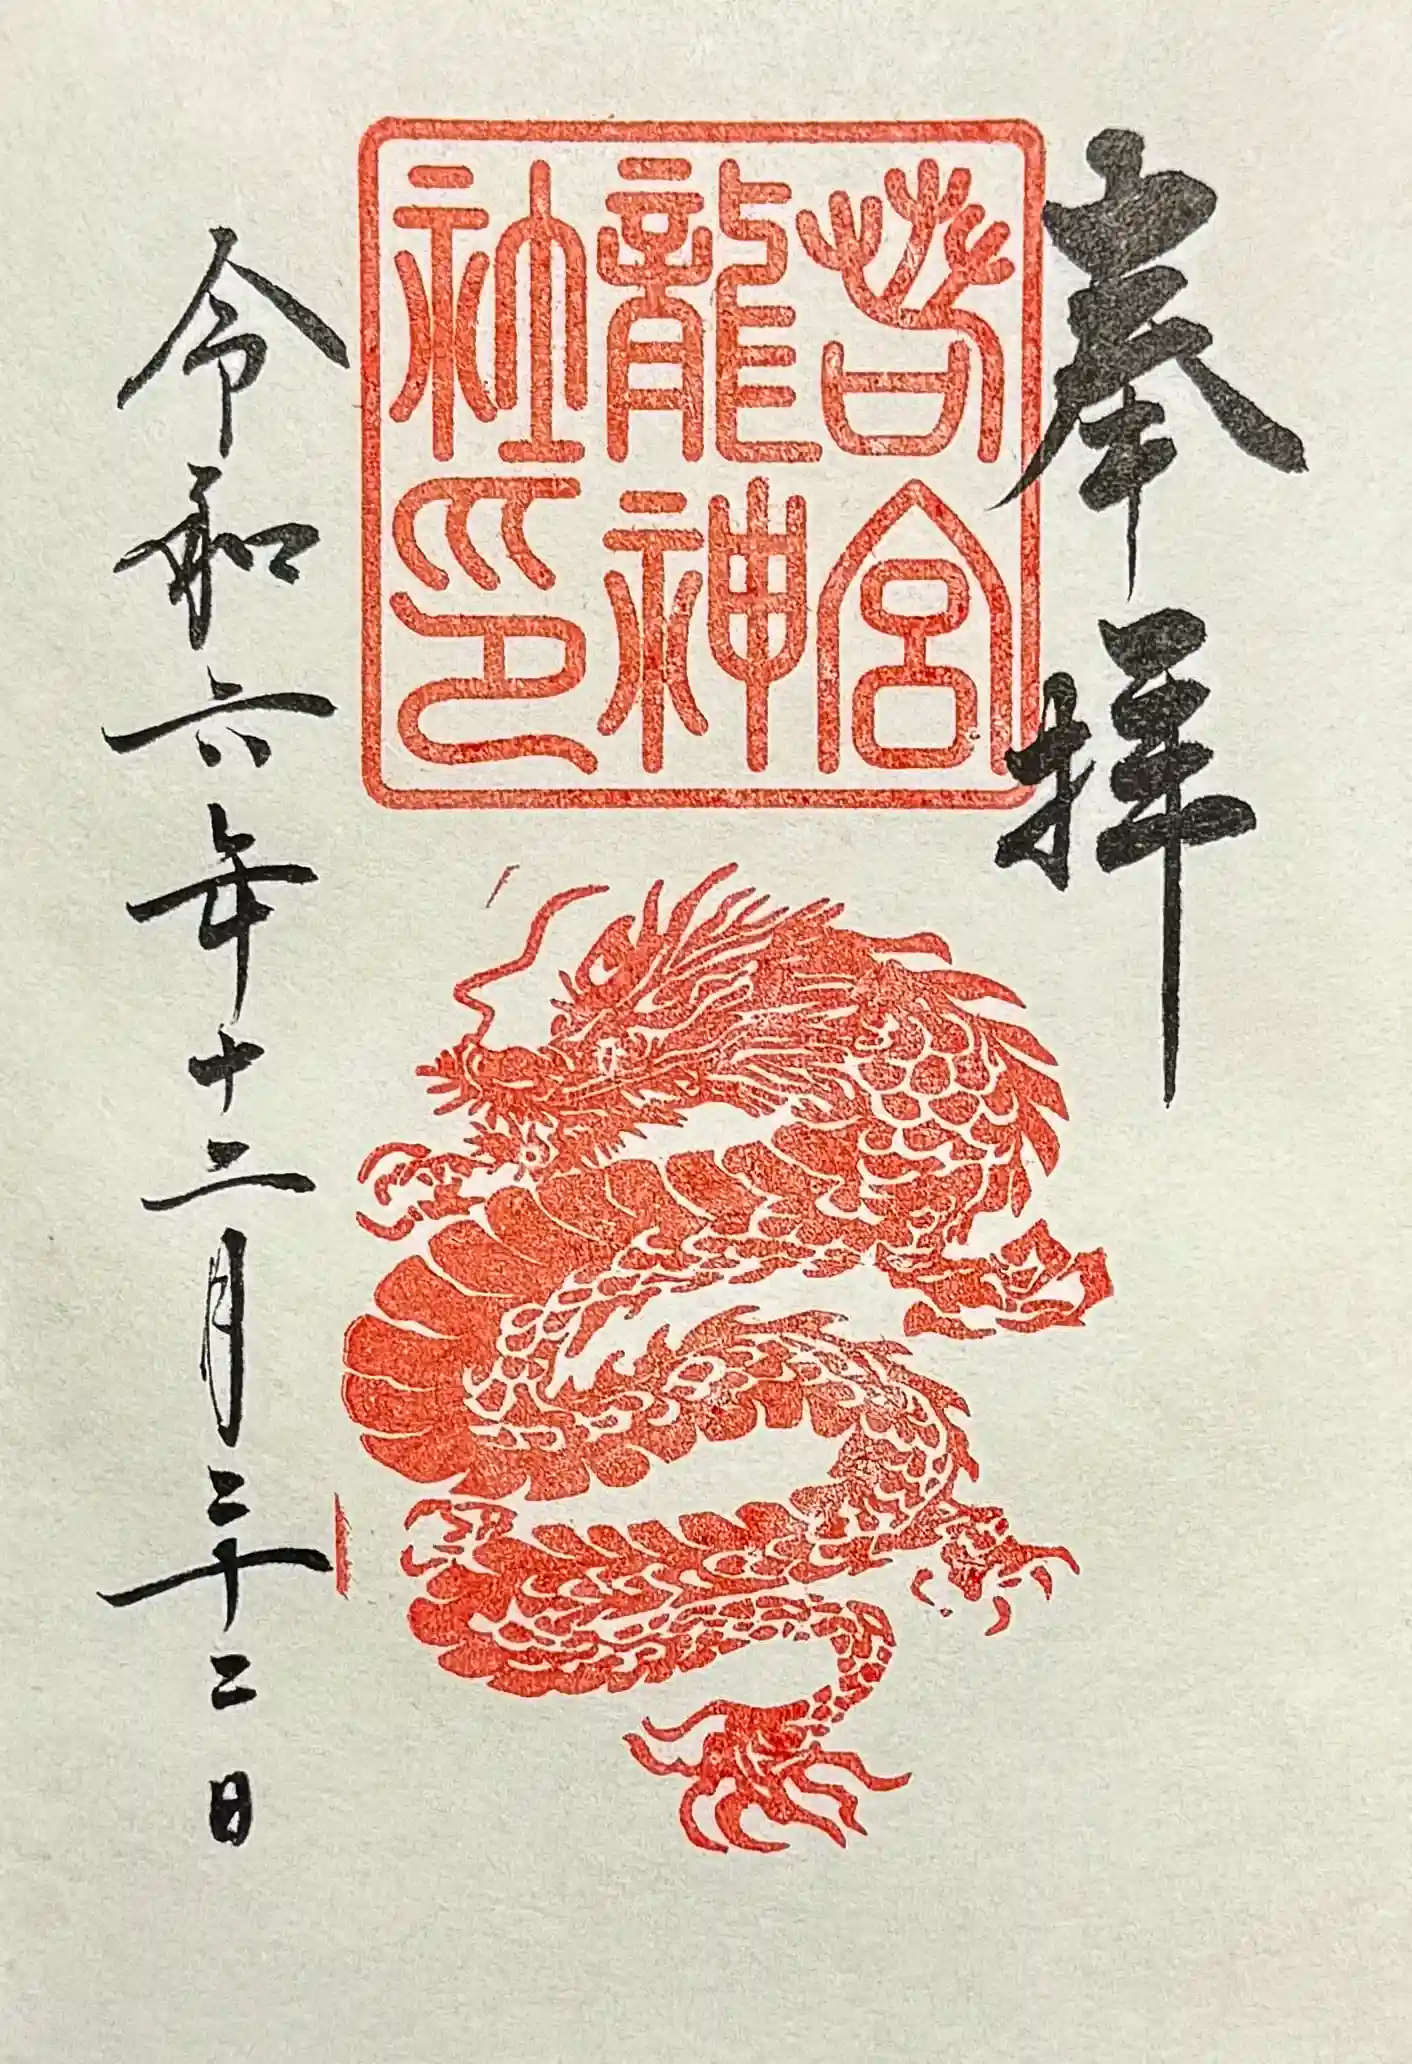 奉拝
若宮
龍神
社印
令和六年十二月二十二日